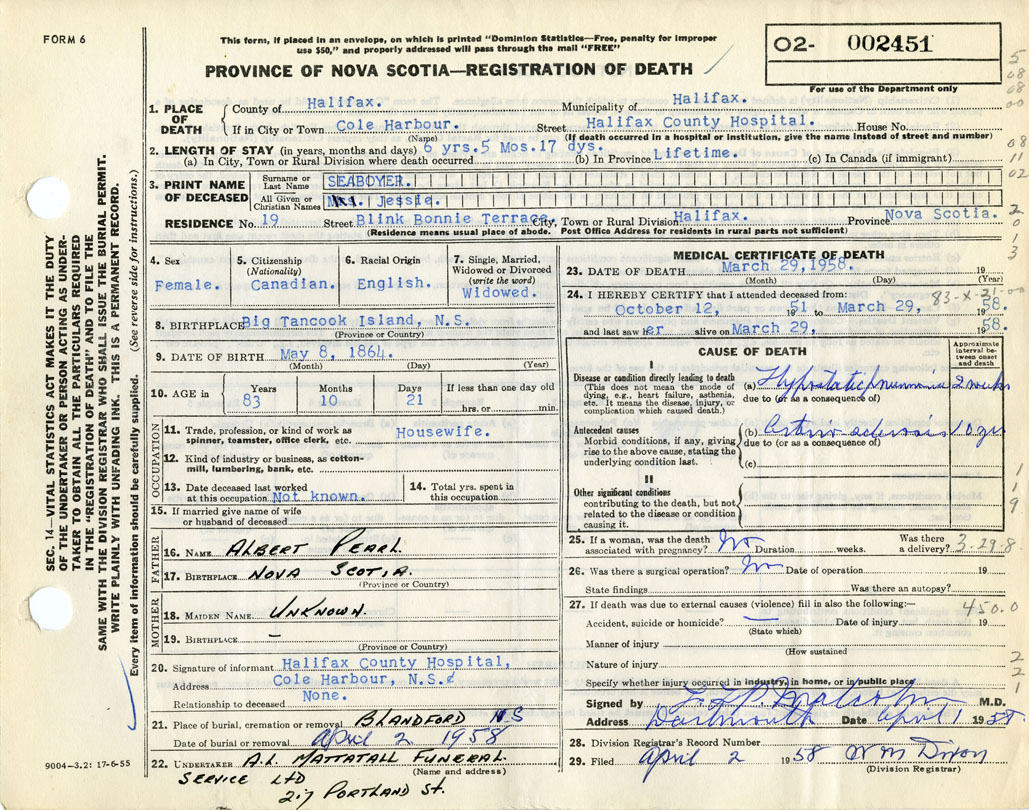 FORM 6
This form, if placed in an envelope, on which is printed "Dominion Statistics—Free, penalty for improper
use $50," and properly addressed will pass through the mail "FREE"
O2- 002451
For use of the Department only
PROVINCE OF NOVA SCOTIA—REGISTRATION OF DEATH
1. PLACE OF DEATH
County of Halifax. Municipality of Halifax.
If in City or Town Cole Harbour. Street Halifax County Hospital. House No.
(Name) (If death occurred in a hospital or institution, give the name instead of street and number)
2. LENGTH OF STAY (in years, months and days) 6 yrs.5 Mos.17 dys.
(a) In City, Town or Rural Division where death occurred (b) In Province Lifetime. (c) In Canada (if immigrant)
3. PRINT NAME OF DECEASED
Surname or Last Name SEABOYER.
All Given or Christian Names Mrs. Jessie.
RESIDENCE No. 19 Street Blink Bonnie Terrace, City, Town or Rural Division Halifax. Province Nova Scotia.
(Residence means usual place of abode. Post Office Address for residents in rural parts not sufficient)
4. Sex
Female.
5. Citizenship
(Nationality)
Canadian.
6. Racial Origin
English.
7. Single, Married,
Widowed or Divorced
(write the word)
Widowed.
8. BIRTHPLACE Big Tancook Island, N.S.
(Province or Country)
9. DATE OF BIRTH May 8, 1864.
(Month) (Day) (Year)
10. AGE in
Years Months Days If less than one day old
83 10 21 hrs. or min.
OCCUPATION
11. Trade, profession, or kind of work as
spinner, teamster, office clerk, etc. Housewife.
12. Kind of industry or business, as cotton-
mill, lumbering, bank, etc.
13. Date deceased last worked
at this occupation Not known.
14. Total yrs. spent in
this occupation
15. If married give name of wife
or husband of deceased
FATHER
16. NAME ALBERT PEARL
17. BIRTHPLACE NOVA SCOTIA.
(Province or Country)
MOTHER
18. MAIDEN NAME UNKNOWN.
19. BIRTHPLACE —
(Province or Country)
20. Signature of informant Halifax County Hospital,
Address Cole Harbour, N.S.¢
Relationship to deceased None.
21. Place of burial, cremation or removal BLANDFORD N S
Date of burial or removal april 2 1958
22. UNDERTAKER A.L. MATTATALL FUNERAL
(Name and address)
SERVICE LTD
217 PORTLAND St.
9004—3.2: 17-6-55
MEDICAL CERTIFICATE OF DEATH
23. DATE OF DEATH March 29,1958. 19
(Month) (Day) (Year)
24. I HEREBY CERTIFY that I attended deceased from: 83-X-21-00
October 12, 19 51 to March 29, 19 58.
and last saw h er alive on March 29, 19 58.
CAUSE OF DEATH
Approximate
interval be-
tween onset
and death
I
Disease or condition directly leading to death
(This does not mean the mode of
dying, e.g., heart failure, asthenia,
etc. It means the disease, injury, or
complication which caused death.)
(a) Hypostatic pneumonia 2 weeks
due to (or as a consequence of)
Antecedent causes
Morbid conditions, if any, giving
rise to the above cause, stating the
underlying condition last.
(b) Arterio-sclerosis 10 yrs
due to (or as a consequence of)
(c)
II
Other significant conditions
contributing to the death, but not
related to the disease or condition
causing it.
25. If a woman, was the death
associated with pregnancy? No Duration weeks. Was there
a delivery? 3-29-8
26. Was there a surgical operation? No Date of operation 19
State findings Was there an autopsy?
27. If death was due to external causes (violence) fill in also the following:—
450.0
Accident, suicide or homicide? — Date of injury 19
(State which)
Manner of injury
(How sustained
Nature of injury
Specify whether injury occurred in industry, in home, or in public place
Signed by Malcolm M.D.
Address Dartmouth Date april 1 1958
28. Division Registrar's Record Number
29. Filed april 2 1958 W M Dixon
(Division Registrar)
SEC. 14—VITAL STATISTICS ACT MAKES IT THE DUTY
OF THE UNDERTAKER OR PERSON ACTING AS UNDER-
TAKER TO OBTAIN ALL THE PARTICULARS REQUIRED
IN THE "REGISTRATION OF DEATH" AND TO FILE THE
SAME WITH THE DIVISION REGISTRAR WHO SHALL ISSUE THE BURIAL PERMIT.
WRITE PLAINLY WITH UNFADING INK. THIS IS A PERMANENT RECORD.
Every item of information should be carefully supplied. (See reverse side for instructions.)
5
08
08
00
08
11
02
2
0
1
3
1
1
9
2
2
1